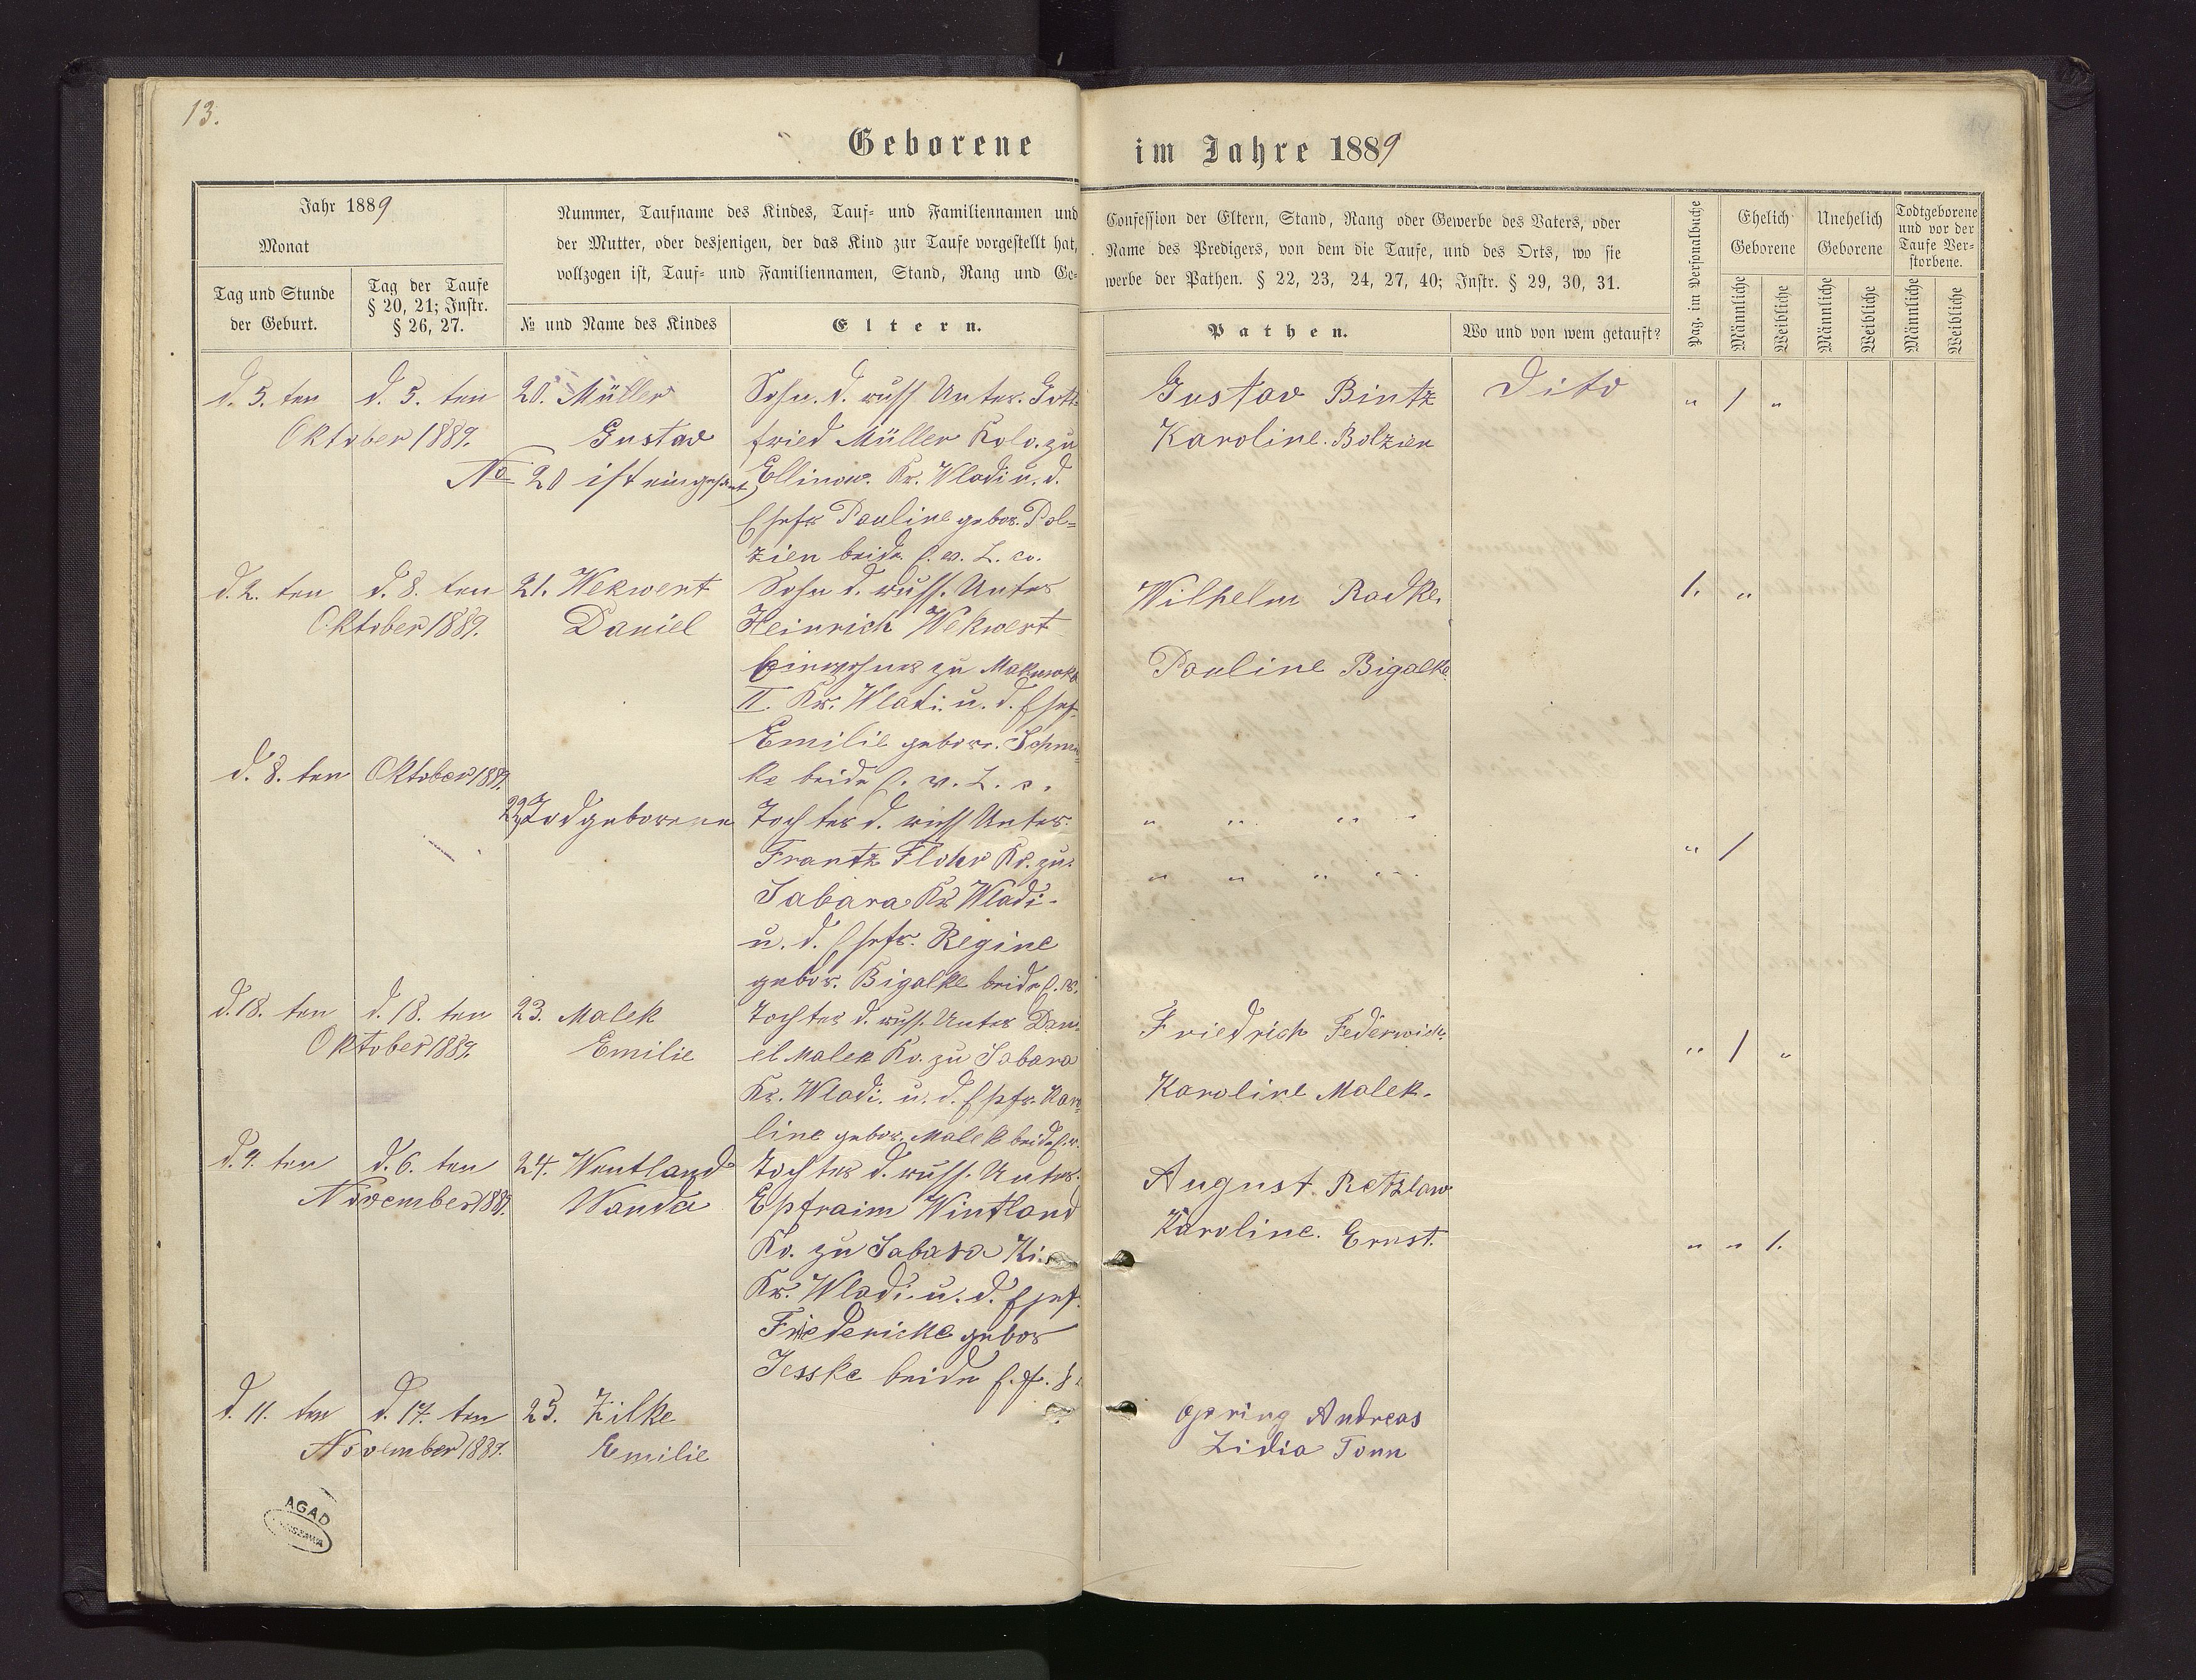 13.
Geborene im Jahre 1889
Jahr 1889
Monat
Tag und Stunde
der Geburt.
Tag der Taufe
§ 20, 21; Instr.
§ 26, 27.
Nummer, Taufname des Kindes, Tauf- und Familiennamen und
der Mutter, oder desjenigen, der das Kind zur Taufe vorgestellt hat,
vollzogen ist, Tauf- und Familiennamen, Stand, Rang und Ge-
№ und Name des Kindes
Eltern.
Confession der Eltern, Stand, Rang oder Gewerbe des Vaters, oder
Name des Predigers, von dem die Taufe, und des Orts, wo sie
werbe der Pathen. § 22, 23, 24, 27, 40; Instr. § 29, 30, 31.
Pathen.
Wo und von wem getauft?
Pag. im Personalbuche
Ehelich
Geborene
Unehelich
Geborene
Todtgeborene
und vor der
Taufe Ver-
storbene.
Männliche
Weibliche
Männliche
Weibliche
Männliche
Weibliche
d. 5. ten
d. 5. ten
Oktober 1889.
20. Müller
Gustav
No 20 ist
Sohn. d. russ Unter. Gott
fried Müller Kolo. zu
Ellinow. Kr. Wladi u. d.
Ehefr Pauline gebor. Pol=
zien beide
Gustav Bintz
Karoline. Bolzien
Dito
" / "
d. 2. ten
d. 8. ten
Oktober 1889.
21. Wekwert
Daniel
Sohn d. russ. Unter
Heinrich Wekwert
Einwohner zu
II. Kr. Wladi. u. d. Ehef.
Emilie gebor.
ke beide
Wilhelm Radke.
Pauline Bigalke.
1. "
d. 8. ten Oktober 1889.
22. Todgeborene
Tochter d. russ Unter.
Frantz Flohr Ko. zu
Sabara Kr Wladi.
u. d. Ehefr. Regine
gebor. Bigalke beide
" " " "
" " " "
" /
d. 18. ten
d. 18. ten
Oktober 1889.
23. Malek
Emilie
Tochter d. russ. Unter Dan
iel Malek Ko. zu Sabara
Kr. Wladi. u. d. Ehefr. Karo
line gebor. Malek beide
Friedrich
Karoline Malek.
" / "
d. 4. ten
d. 6. ten
November 1889.
24. Wentland
Wanda
Tochter d. russ. Unter.
Epfraim Wintland
Ko. zu Sabara
Kr. Wladi. u. d. Ehef.
Friedericke gebor
Jesske beide
August. Retzlaw
Karoline. Ernst.
" " 1.
d. 11. ten
d. 17. ten
November 1889.
25. Zilke
Emilie
Andreas
Lidia Tonn
AGAD